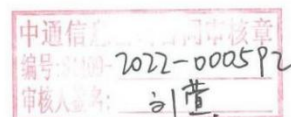 中通信息 合同审核章
编号: 2022-000592
审核人签名: 刘萱